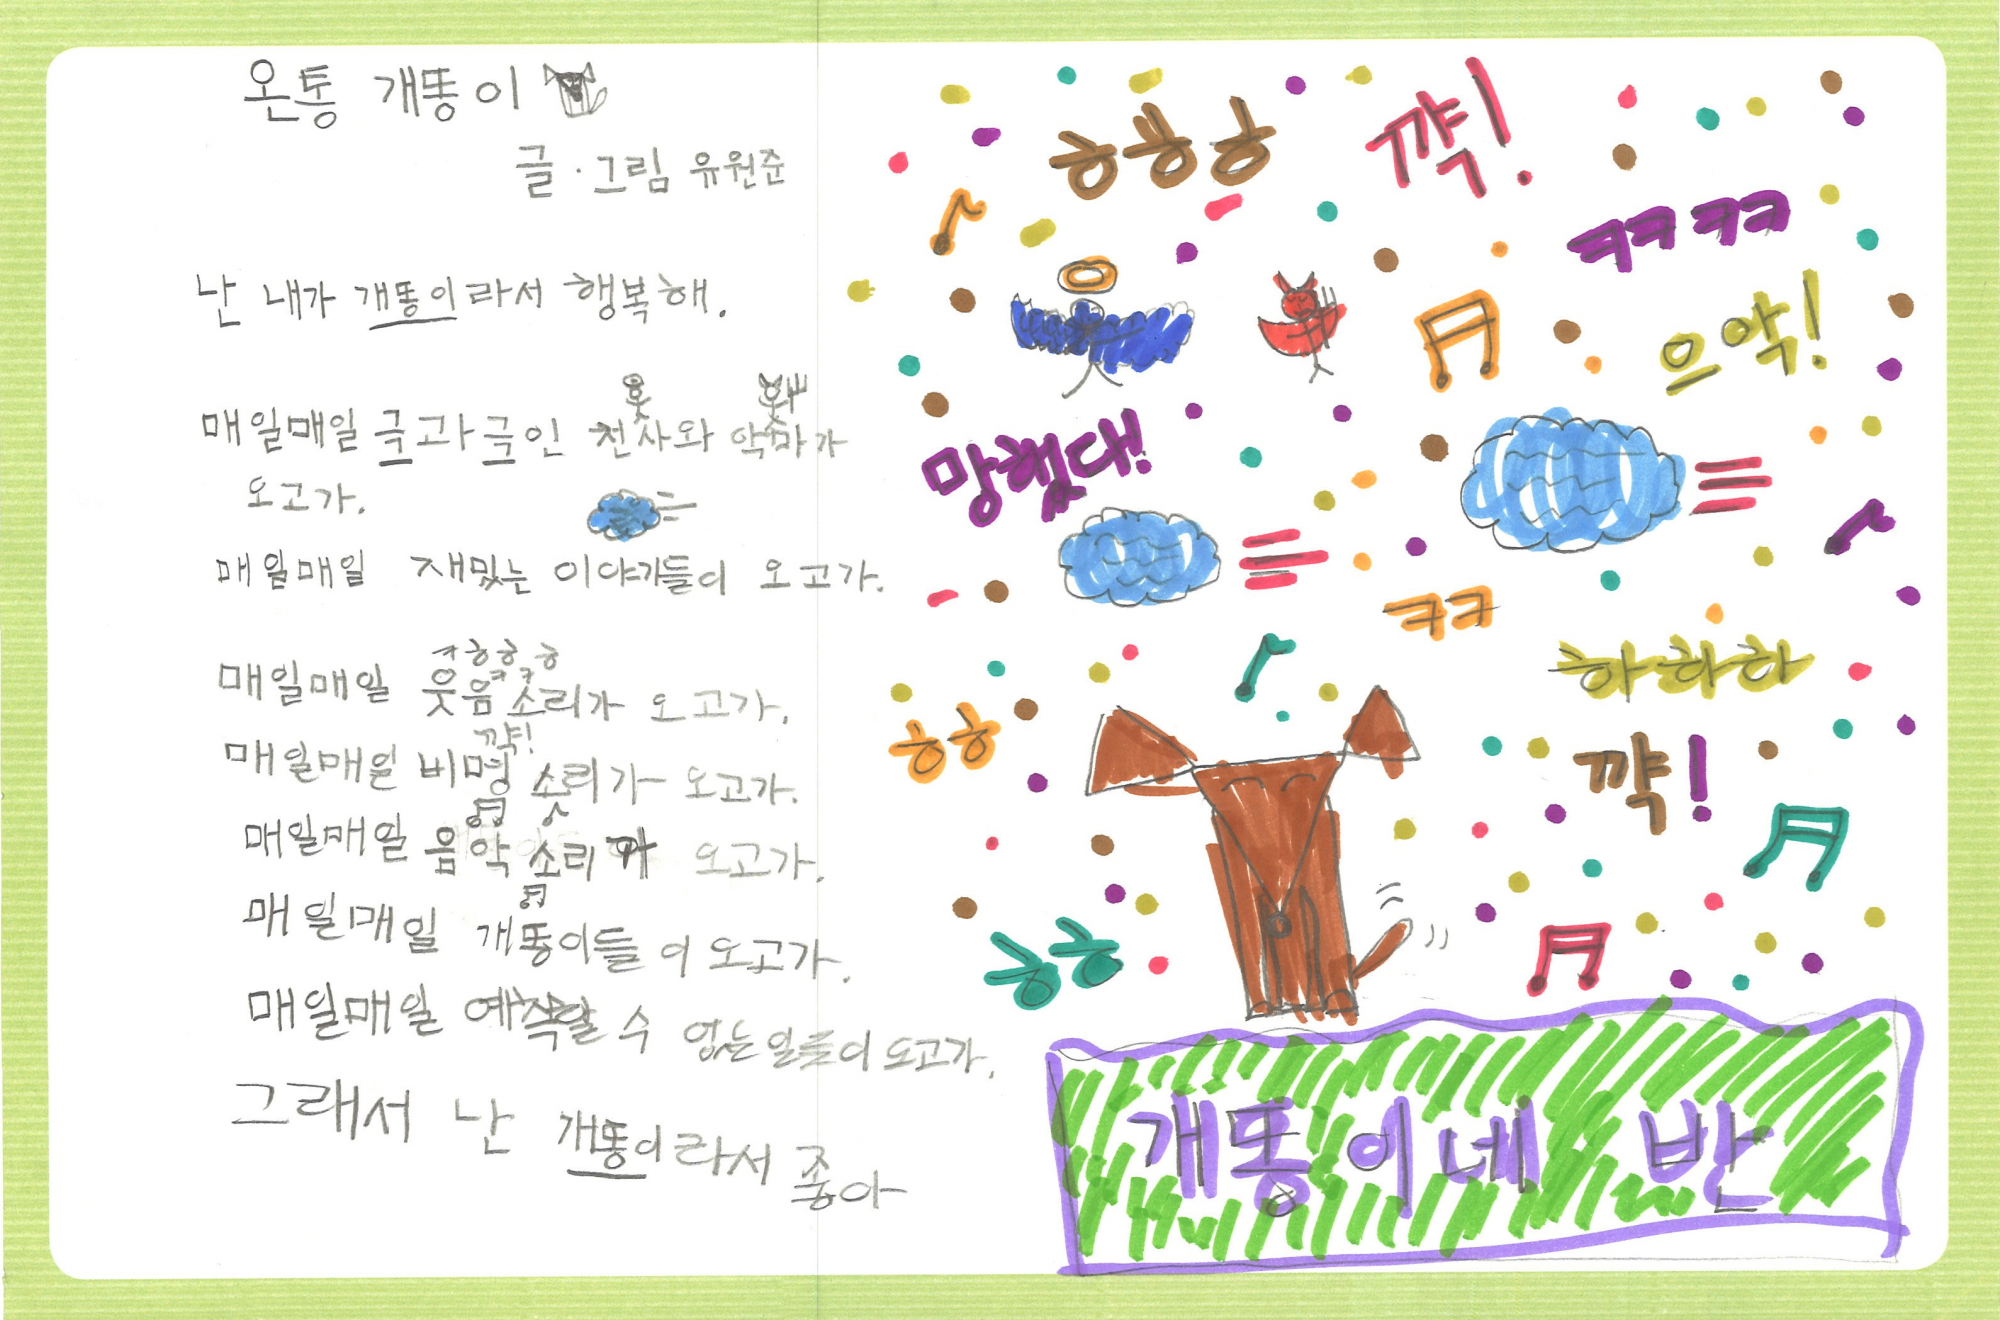 온통 개똥이
글·그림 유원준
난 내가 개똥이라서 행복해.
매일매일 극과 극인 천사와 악마가
오고가.
매일매일 재밌는 이야기들이 오고가.
ㅋㅎㅎㅎ
ㅋㅋ
매일매일 웃음 소리가 오고가.
꺅!
매일매일 비명 소리가 오고가.
매일매일 음악 소리가 오고가.
매일매일 개똥이들이 오고가.
매일매일 예측할 수 없는 일들이 오고가.
그래서 난 개똥이라서 좋아
ㅎㅎㅎ
꺅!
ㅋㅋㅋㅋ
으악!
망했다!
ㅋㅋ
하하하
ㅎㅎ
꺅!
ㅎㅎ
개똥이네 반